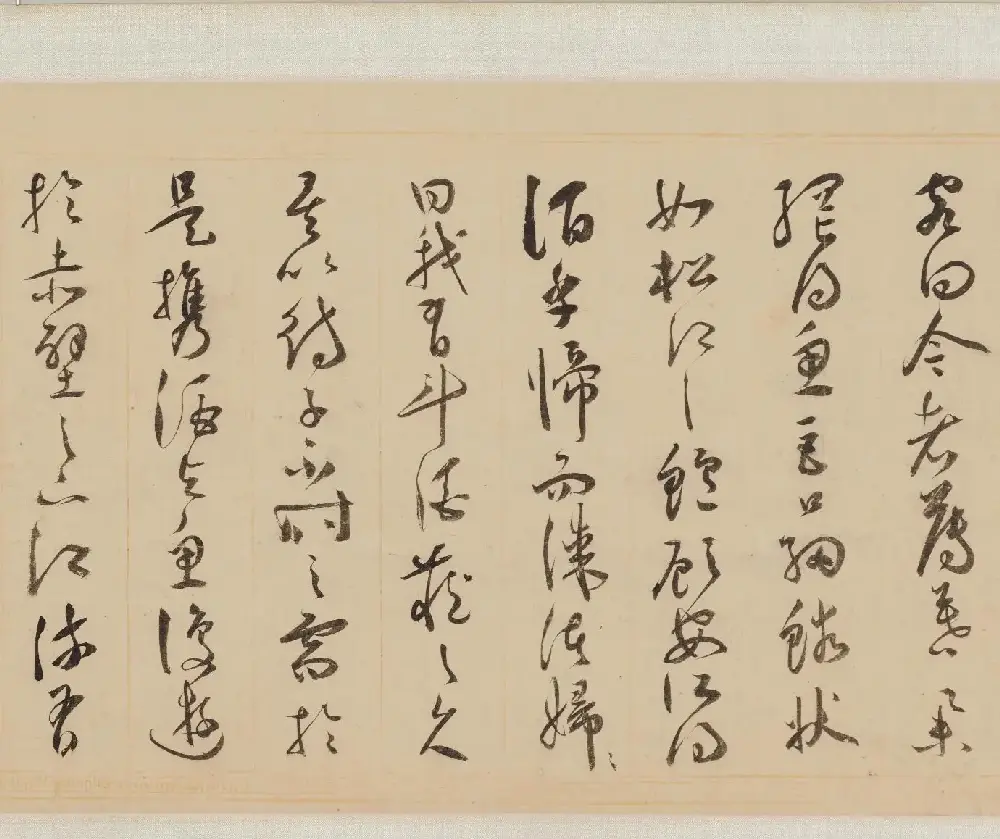 客曰今者薄暮舉
網得魚巨口細鱗狀
如松江之鱸顧安所得
酒乎歸而謀諸婦〻
曰我有斗酒藏之久
矣以待子不時之需於
是攜酒與魚復遊
於赤壁之下江流有